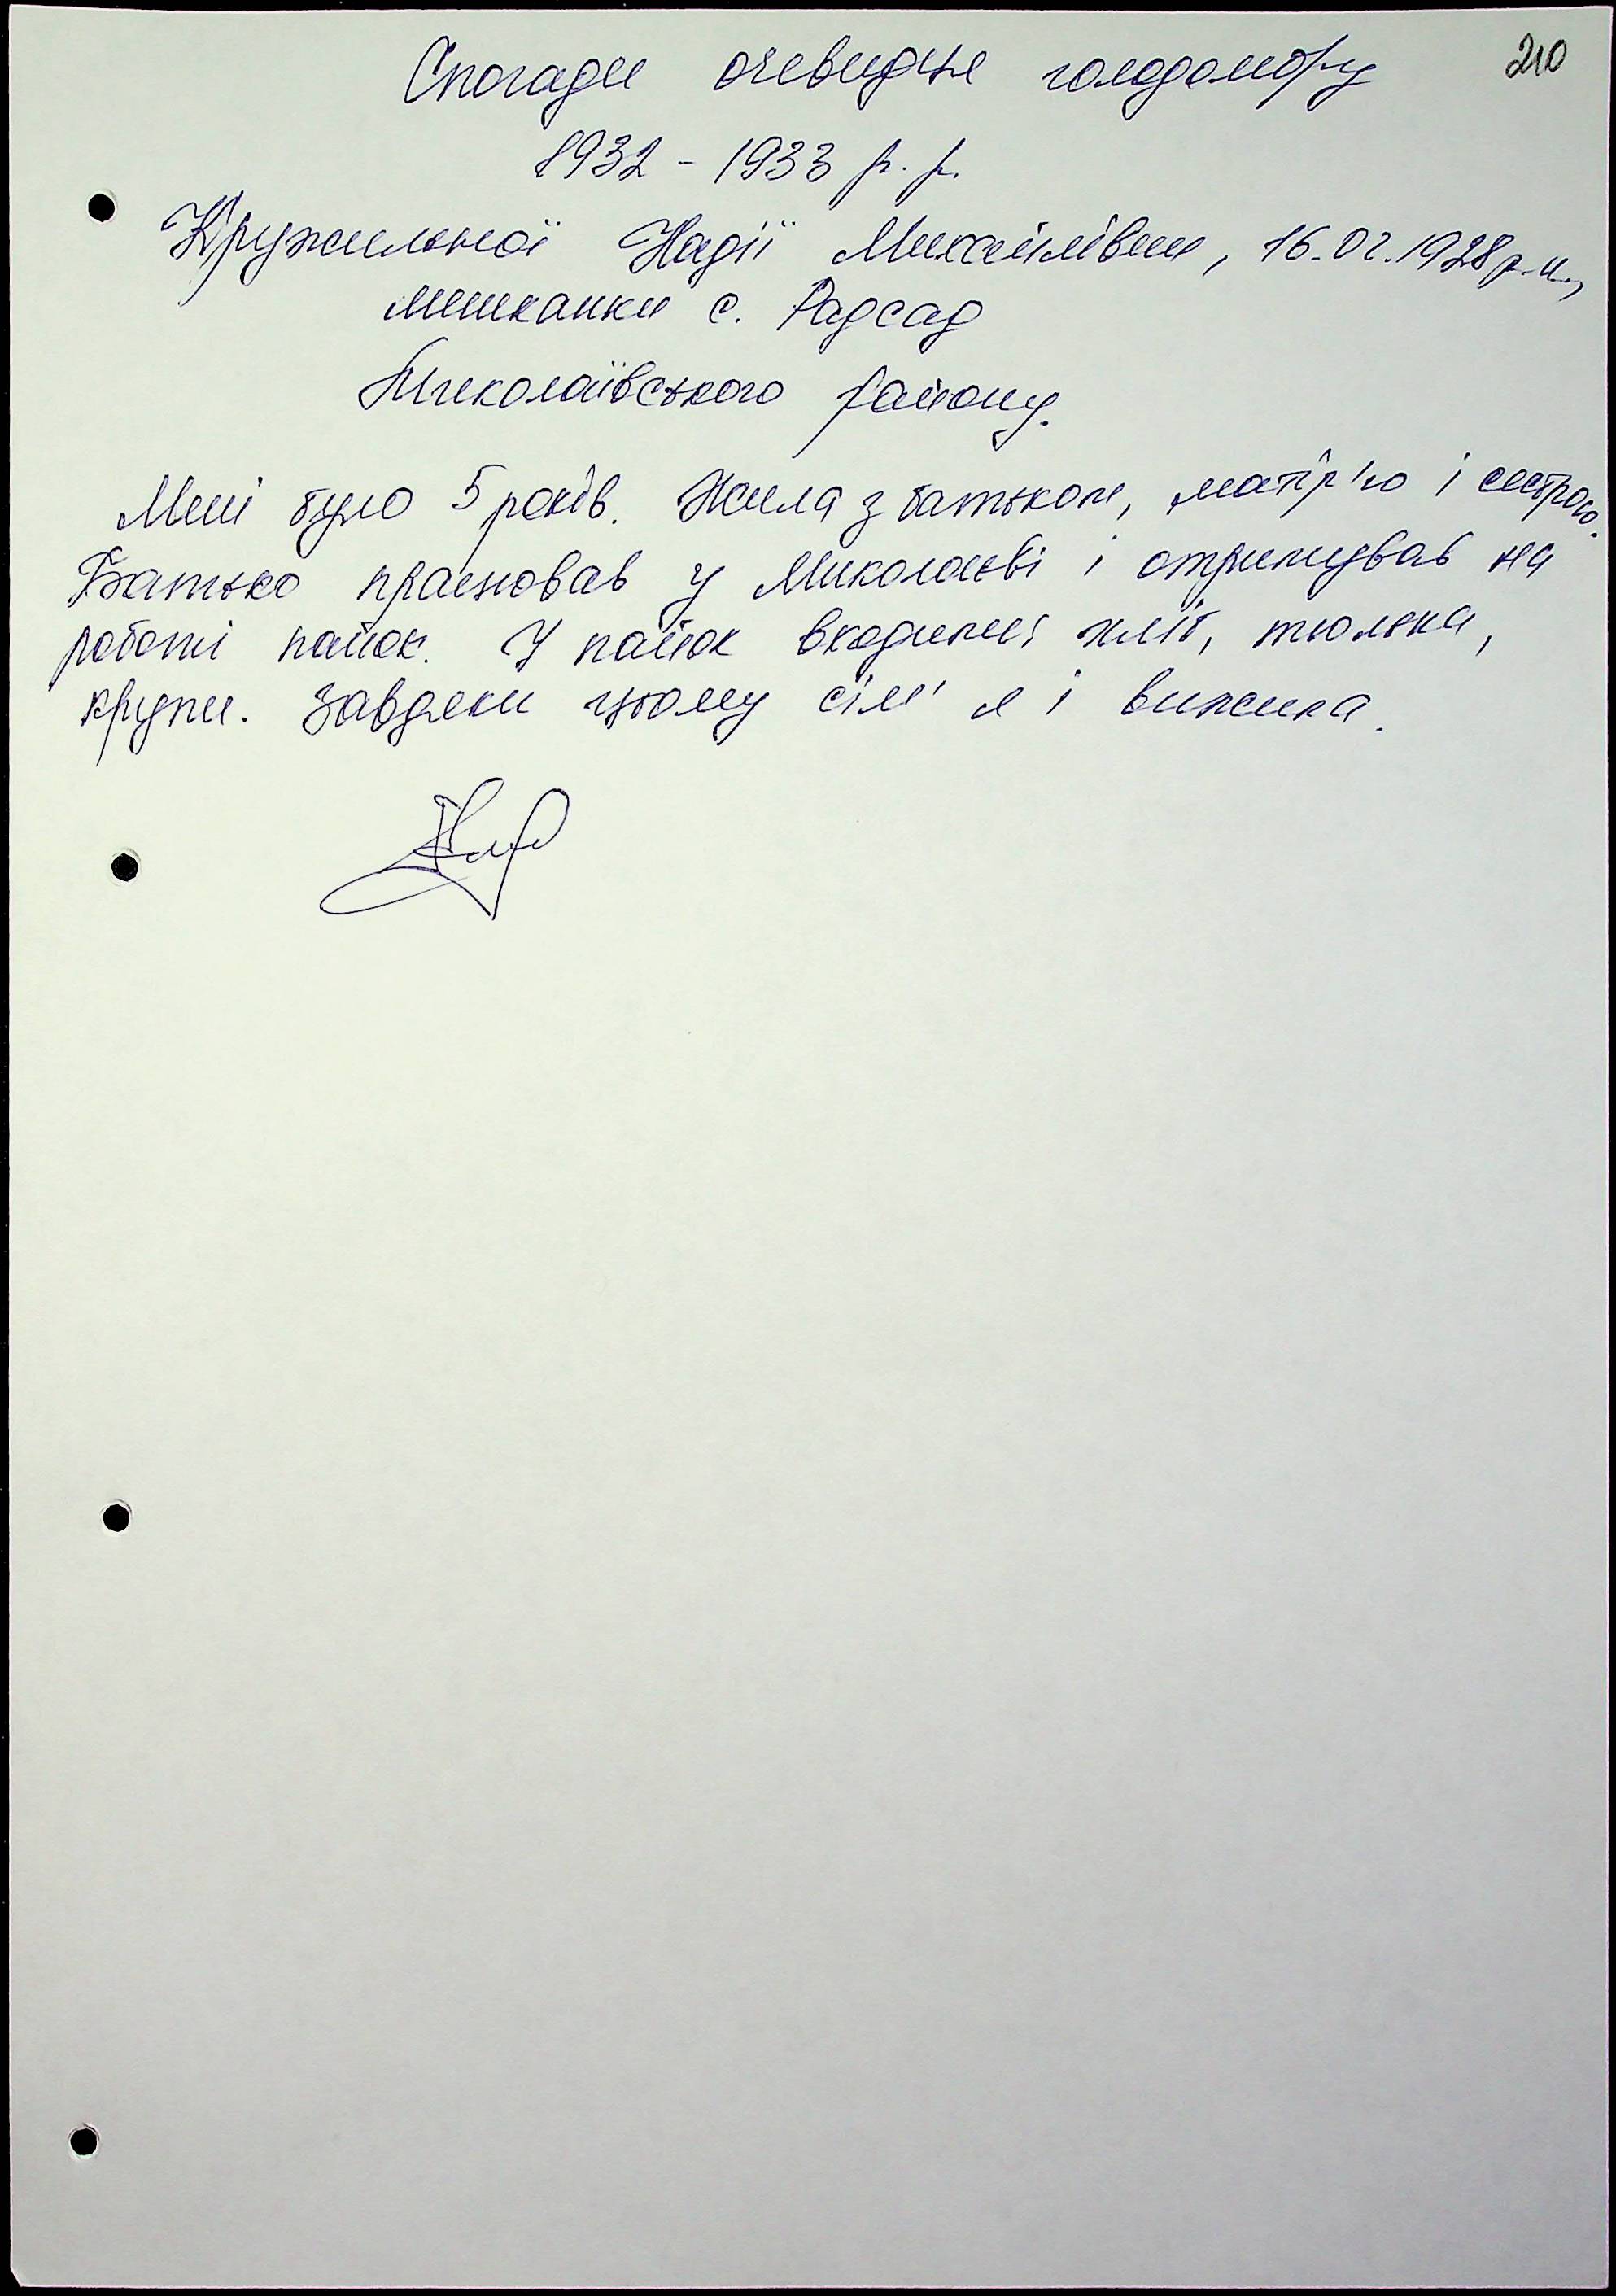 210
Спогади очевидця голодомору
1932 - 1933 р. р.
Кружильної Надії Михайлівни, 16.02.1928 р.н.,
мешканки с. Радсад
Миколаївського району.
Мені було 5 років. Жила з батьком, матір'ю і сестрою.
Батько працював у Миколаєві і отримував на
роботі пайок. У пайок входили: хліб, тюлька,
крупи. Завдяки цьому сім'я і вижила.